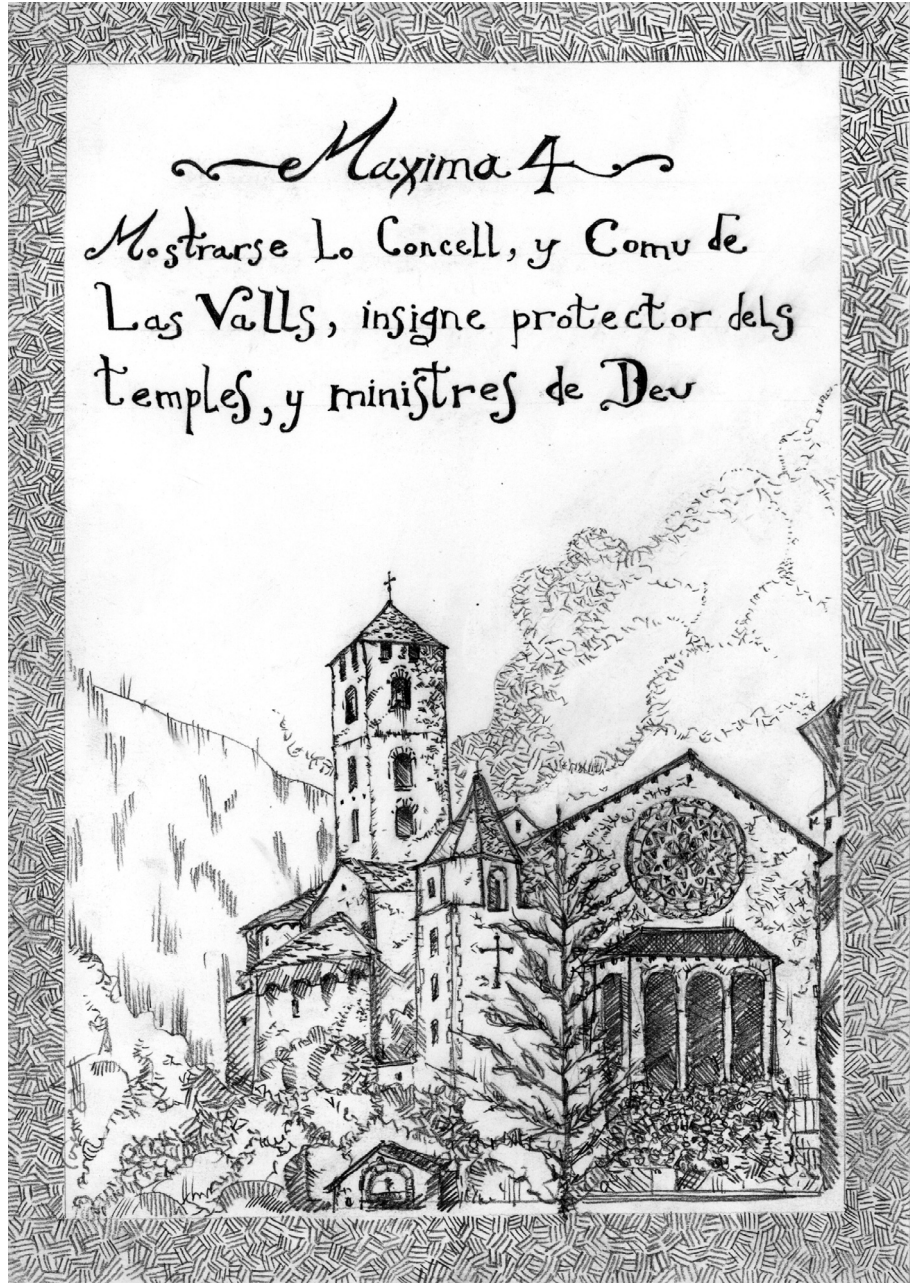 Maxima 4
Mostrarse Lo Concell, y Comu de
Las Valls, insigne protector dels
temples, y ministres de Deu